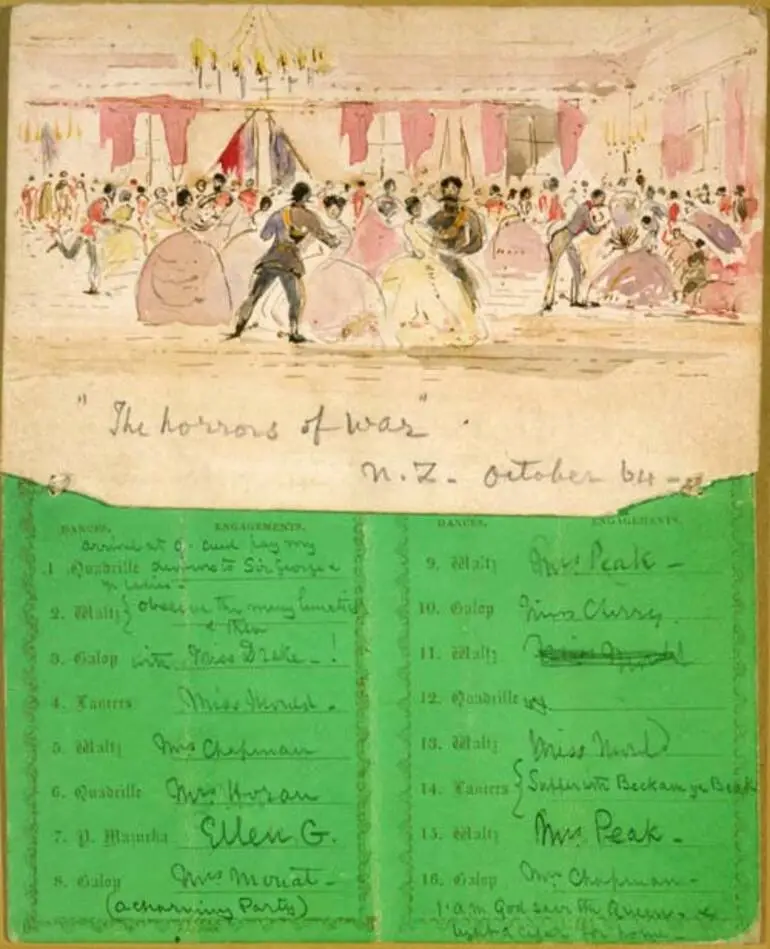 "The horrors of war".
N.Z. October 64 -
DANCES. ENGAGEMENTS.
arrival at 9. and pay my
1. Quadrille devoirs to Sir George &
ye ladies -
2. Waltz { observe the many
& then
3. Galop with Miss Drake - !
4. Lancers Miss
5. Waltz Mrs Chapman
6. Quadrille Mrs Horan
7. P. Mazurka Ellen G.
8. Galop
(a charming Party)
DANCES. ENGAGEMENTS.
9. Waltz Mrs Peak -
10. Galop Miss Cherry.
11. Waltz
12. Quadrille
13. Waltz Miss
14. Lancers { Supper with
15. Waltz Mrs Peak -
16. Galop Mrs Chapman -
1 a.m. God save the Queen - &
light a cigar for home -